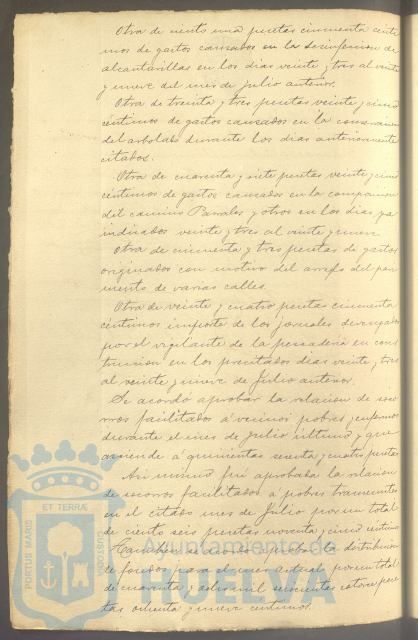 Otra de ciento una pesetas cincuenta cénti
mos de gastos causados en la desinfección de
alcantarillas en los días veinte y tres al veinte
y nueve del mes de Julio anterior.
Otra de treinta y tres pesetas veinte y cinco
céntimos de gastos causados en la conservación
del arbolado durante los días anteriormente
citados.
Otra de cuarenta y siete pesetas veinte y cinco
céntimos de gastos causados en la composición
del camino Parrales y otros en los días ya
indicados veinte y tres al veinte y nueve
Otra de cincuenta y tres pesetas de gastos
originados con motivo del arreglo del pavi
mento de varias calles.
Otra de veinte y cuatro pesetas cincuenta
céntimos importe de los jornales devengados
por el vigilante de la pescadería en cons
trucción en los precitados días veinte y tres
al veinte y nueve de Julio anterior.
Se acordó aprobar la relación de soco
rros facilitados á vecinos pobres enfermos
durante el mes de Julio último y que
asciende á quinientas sesenta y cuatro pesetas
Asi mismo fué aprobada la relación
de socorros facilitados á pobres transeuntes
en el citado mes de Julio por un total
de ciento seis pesetas noventa y cinco céntimos
Tambien se acordó aprobar la distribución
de fondos para el mes actual por un total
de cuarenta y dos mil seiscientas catorce pese
tas ochenta y nueve céntimos.
PORTUS MARIS ET TERRAE CUSTODIA
Ayuntamiento de
HUELVA